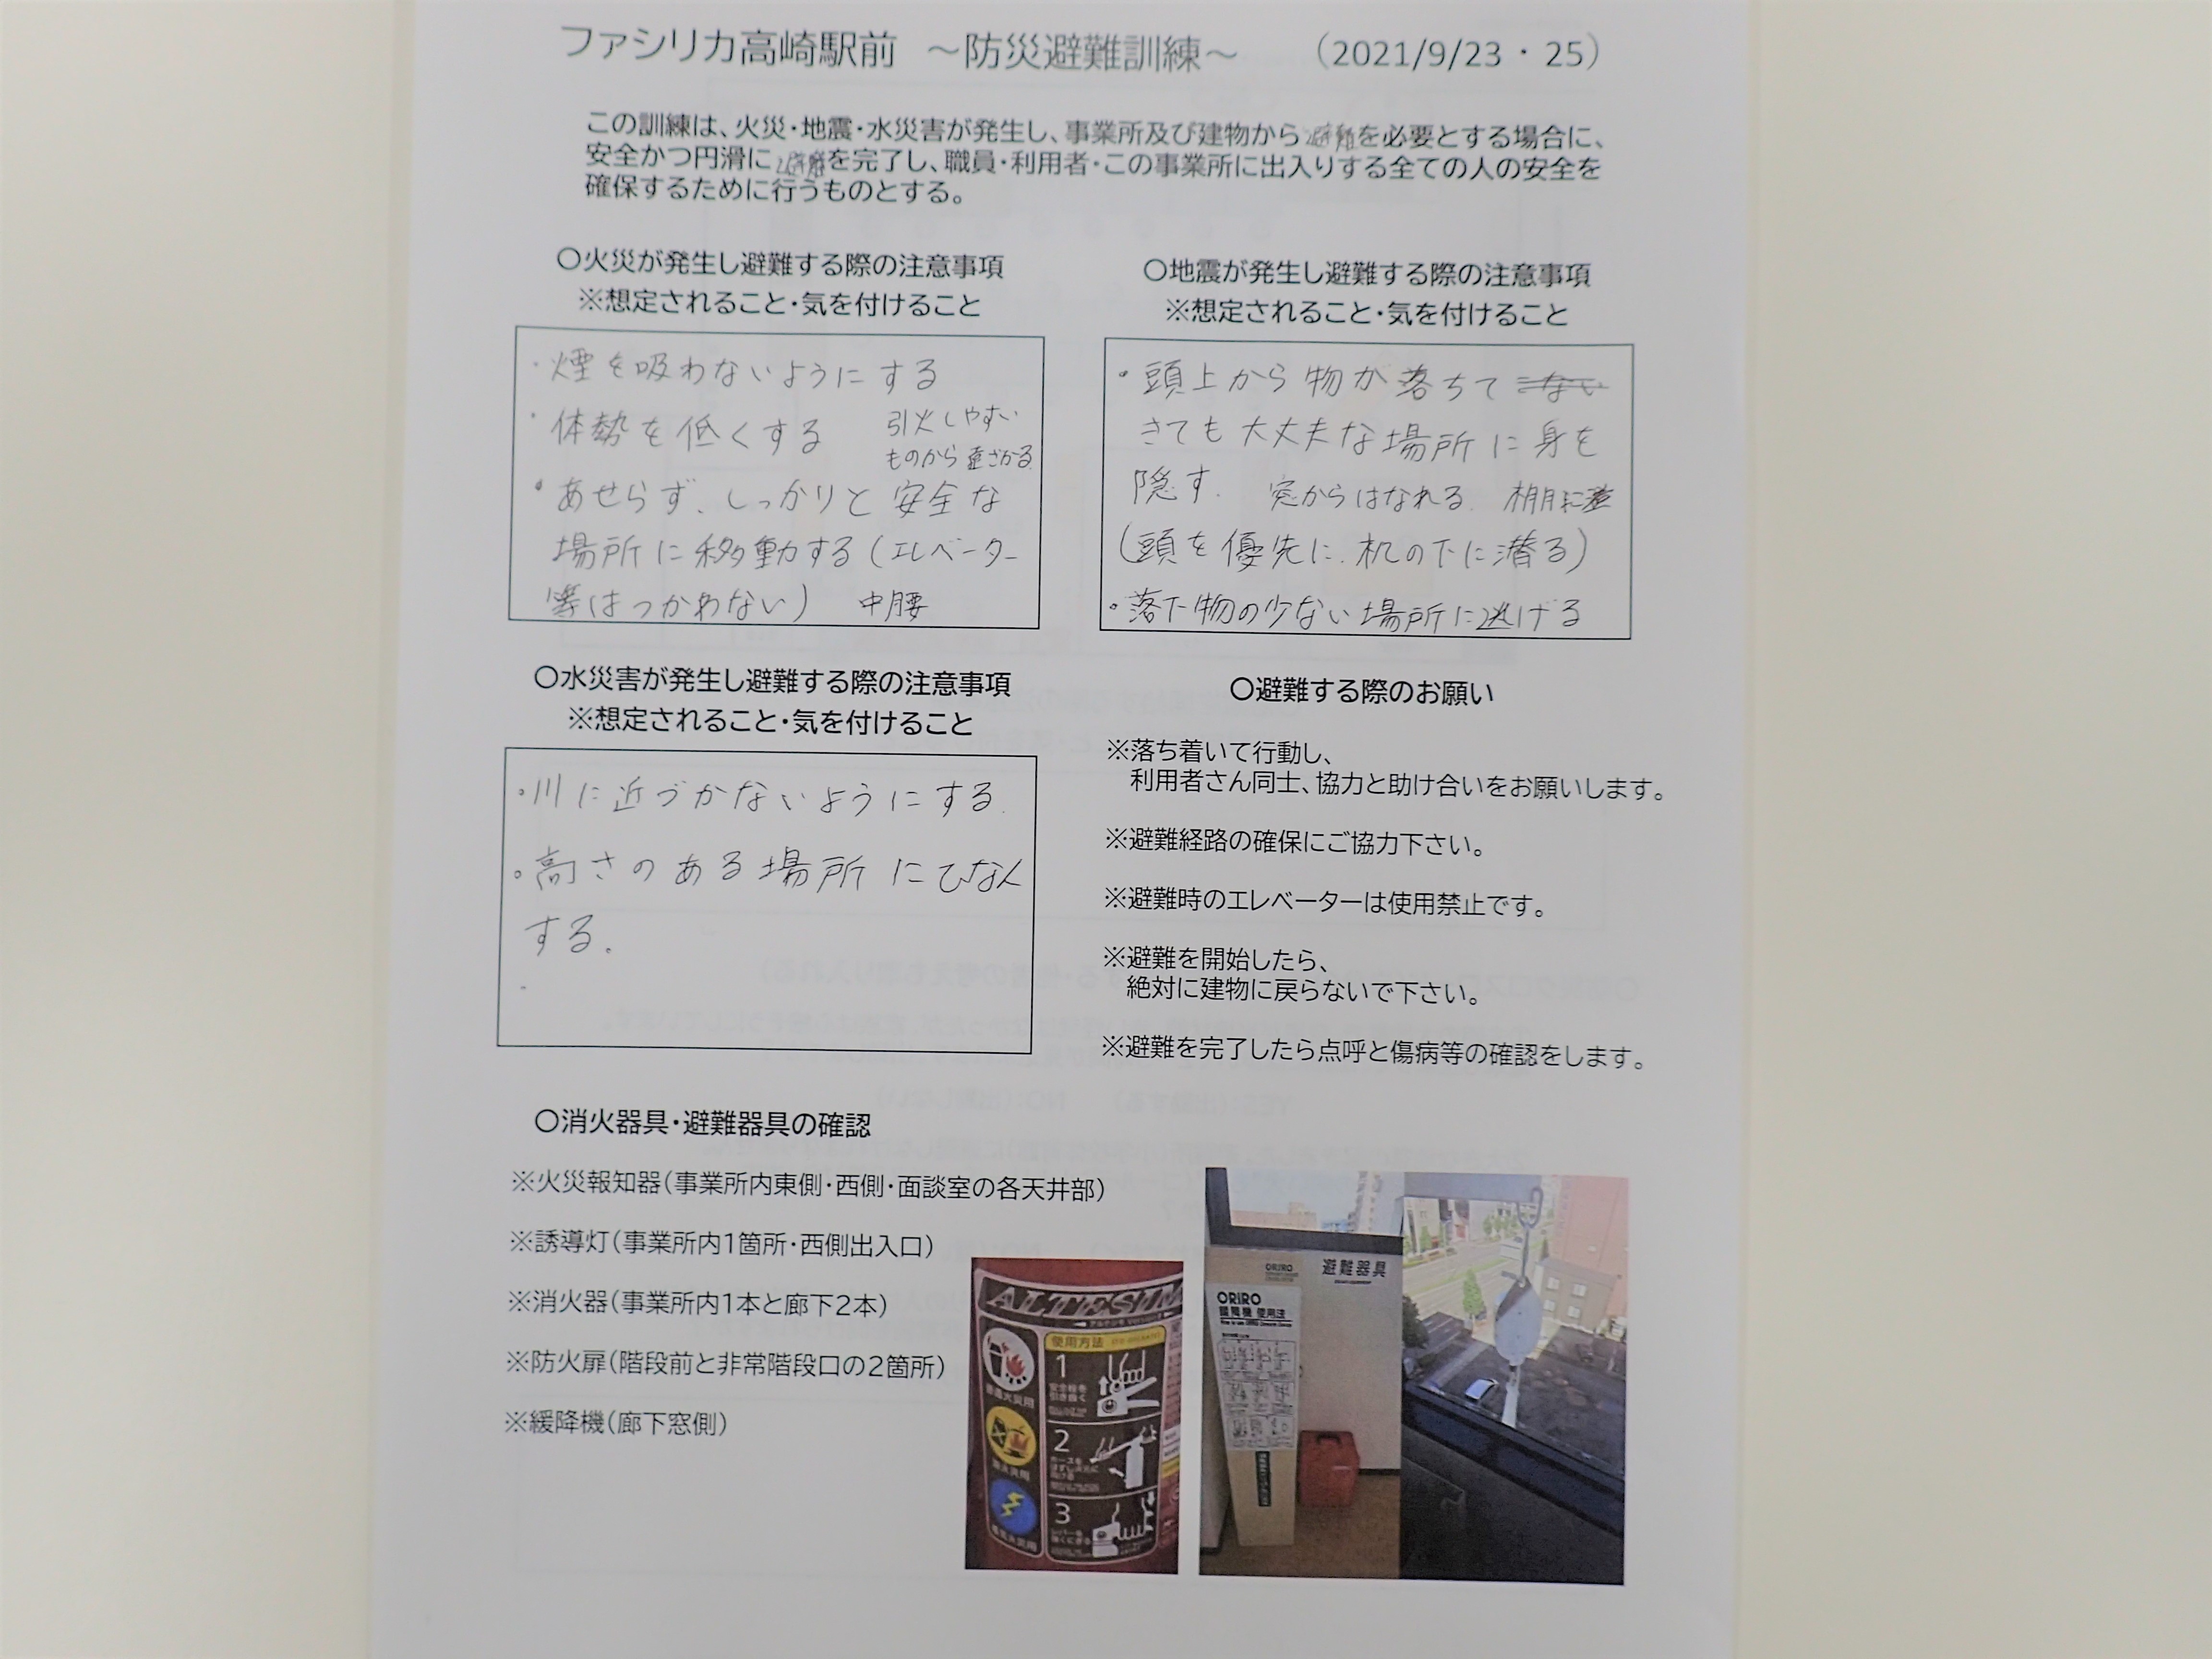 ファシリカ高崎駅前 ～防災避難訓練～ （2021/9/23・25）
この訓練は、火災・地震・水災害が発生し、事業所及び建物から避難を必要とする場合に、
安全かつ円滑に避難を完了し、職員・利用者・この事業所に出入りする全ての人の安全を
確保するために行うものとする。
〇火災が発生し避難する際の注意事項
※想定されること・気を付けること
・煙を吸わないようにする
・体勢を低くする
引火しやすい
ものから遠ざかる
・あせらず、しっかりと安全な
場所に移動する（エレベーター
等はつかわない） 中腰
〇地震が発生し避難する際の注意事項
※想定されること・気を付けること
・頭上から物が落ちてこない
きても大丈夫な場所に身を
隠す. 窓からはなれる. 棚に
（頭を優先に.机の下に潜る）
・落下物の少ない場所に逃げる
〇水災害が発生し避難する際の注意事項
※想定されること・気を付けること
・川に近づかないようにする.
・高さのある場所にひなん
する.
〇避難する際のお願い
※落ち着いて行動し、
利用者さん同士、協力と助け合いをお願いします。
※避難経路の確保にご協力下さい。
※避難時のエレベーターは使用禁止です。
※避難を開始したら、
絶対に建物に戻らないで下さい。
※避難を完了したら点呼と傷病等の確認をします。
〇消火器具・避難器具の確認
※火災報知器（事業所内東側・西側・面談室の各天井部）
※誘導灯（事業所内1箇所・西側出入口）
※消火器（事業所内1本と廊下2本）
※防火扉（階段前と非常階段口の2箇所）
※緩降機（廊下窓側）
ALTESIM
使用方法
1
安全栓を
引き抜く
2
3
ORIRO
避難器具
ORIRO
緩降機 使用法